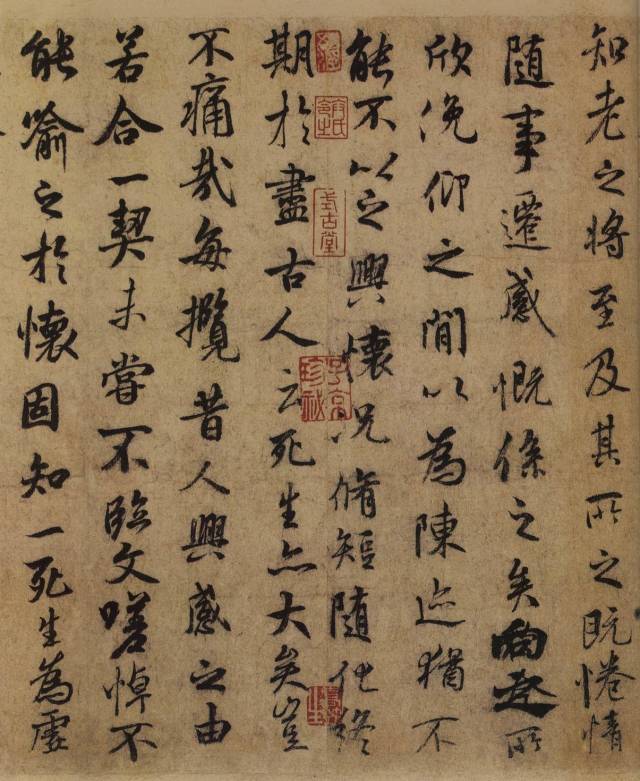 知老之將至及其所之既惓情
隨事遷感慨係之矣向之所
欣俛仰之閒以為陳迹猶不
能不以之興懷況脩短隨化終
期於盡古人云死生亦大矣豈
不痛哉每攬昔人興感之由
若合一契未嘗不臨文嗟悼不
能喻之於懷固知一死生為虛
式古堂
子京
珍祕